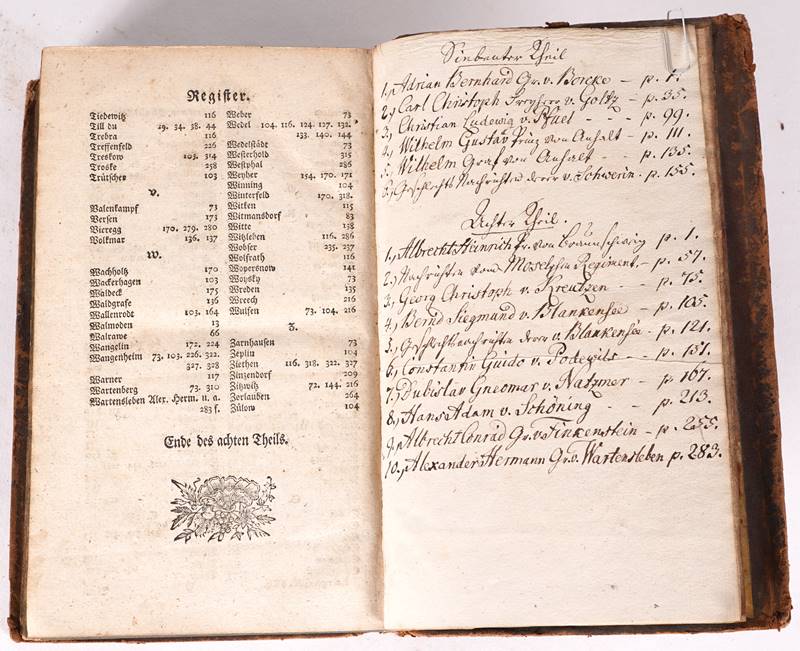 Register.
Tiedewitz 116
Till du 29. 34. 38. 44
Trebra 116
Treffenfeld 226
Treskow 103. 314
Troske 258
Trütscher 103
V.
Valenkampf 73
Versen 173
Vieregg 170. 279. 280
Volkmar 136. 137
W.
Wachholtz 170
Wackerhagen 103
Waldeck 175
Waldgrafe 136
Wallenrode 103. 164
Walmoden 13
Walrawe 66
Wangelin 172. 224
Wangenheim 73. 103. 226. 322.
327. 328
Warner 117
Wartenberg 73. 310
Wartensleben Alex. Herm. u. a.
283 f.
Weber 73
Wedel 104. 116. 124. 127. 132.
133. 140. 144
Wedelstädt 73
Westerhold 315
Westphal 286
Weyher 154. 170. 171
Winning 104
Winterfeld 170. 318.
Witken 115
Witmansdorf 83
Witte 138
Witzleben 116. 286
Wobser 235. 237
Wolfrath 116
Woyersnow 141
Woysky 73
Wreden 135
Wreech 216
Wulfen 73. 104. 216
Z.
Zarnhausen 73
Zeplin 104
Ziethen 116. 318. 322. 327
Zinzendorf 209
Zitzwitz 72. 144. 216
Zorlauben 264
Zülow 104
Ende des achten Theils.
Siebenter Theil
1., Adrian Bernhard Gr. v. Borcke – p. 1.
2., Carl Christoph Freyherr v. Goltz – p. 35.
3., Christian Ludewig v. Pfuel – – – p. 99.
4., Wilhelm Gustav Prinz von Anhalt – p. 111.
5., Wilhelm Graf von Anhalt – – p. 135.
6., Geschlechts Nachrichten derer v. Schwerin. p. 155.
Achter Theil.
1., Albrecht Heinrich Pr. von Braunschweig p. 1.
2., Nachrichten vom Moselschen Regiment. – p. 57.
3., Georg Christoph v. Kreutzen – – p. 75.
4., Bernd Siegmund v. Blankensee – p. 105.
5., Geschlechtsnachrichten derer v. Blankensee – p. 121.
6., Constantin Guido v. Podewils – – p. 151.
7., Dubislav Gneomar v. Natzmer – p. 167.
8., Hans Adam v. Schöning – – p. 213.
9., Albrecht Conrad Gr. v. Finkenstein – p. 255.
10., Alexander Hermann Gr. v. Wartensleben p. 283.